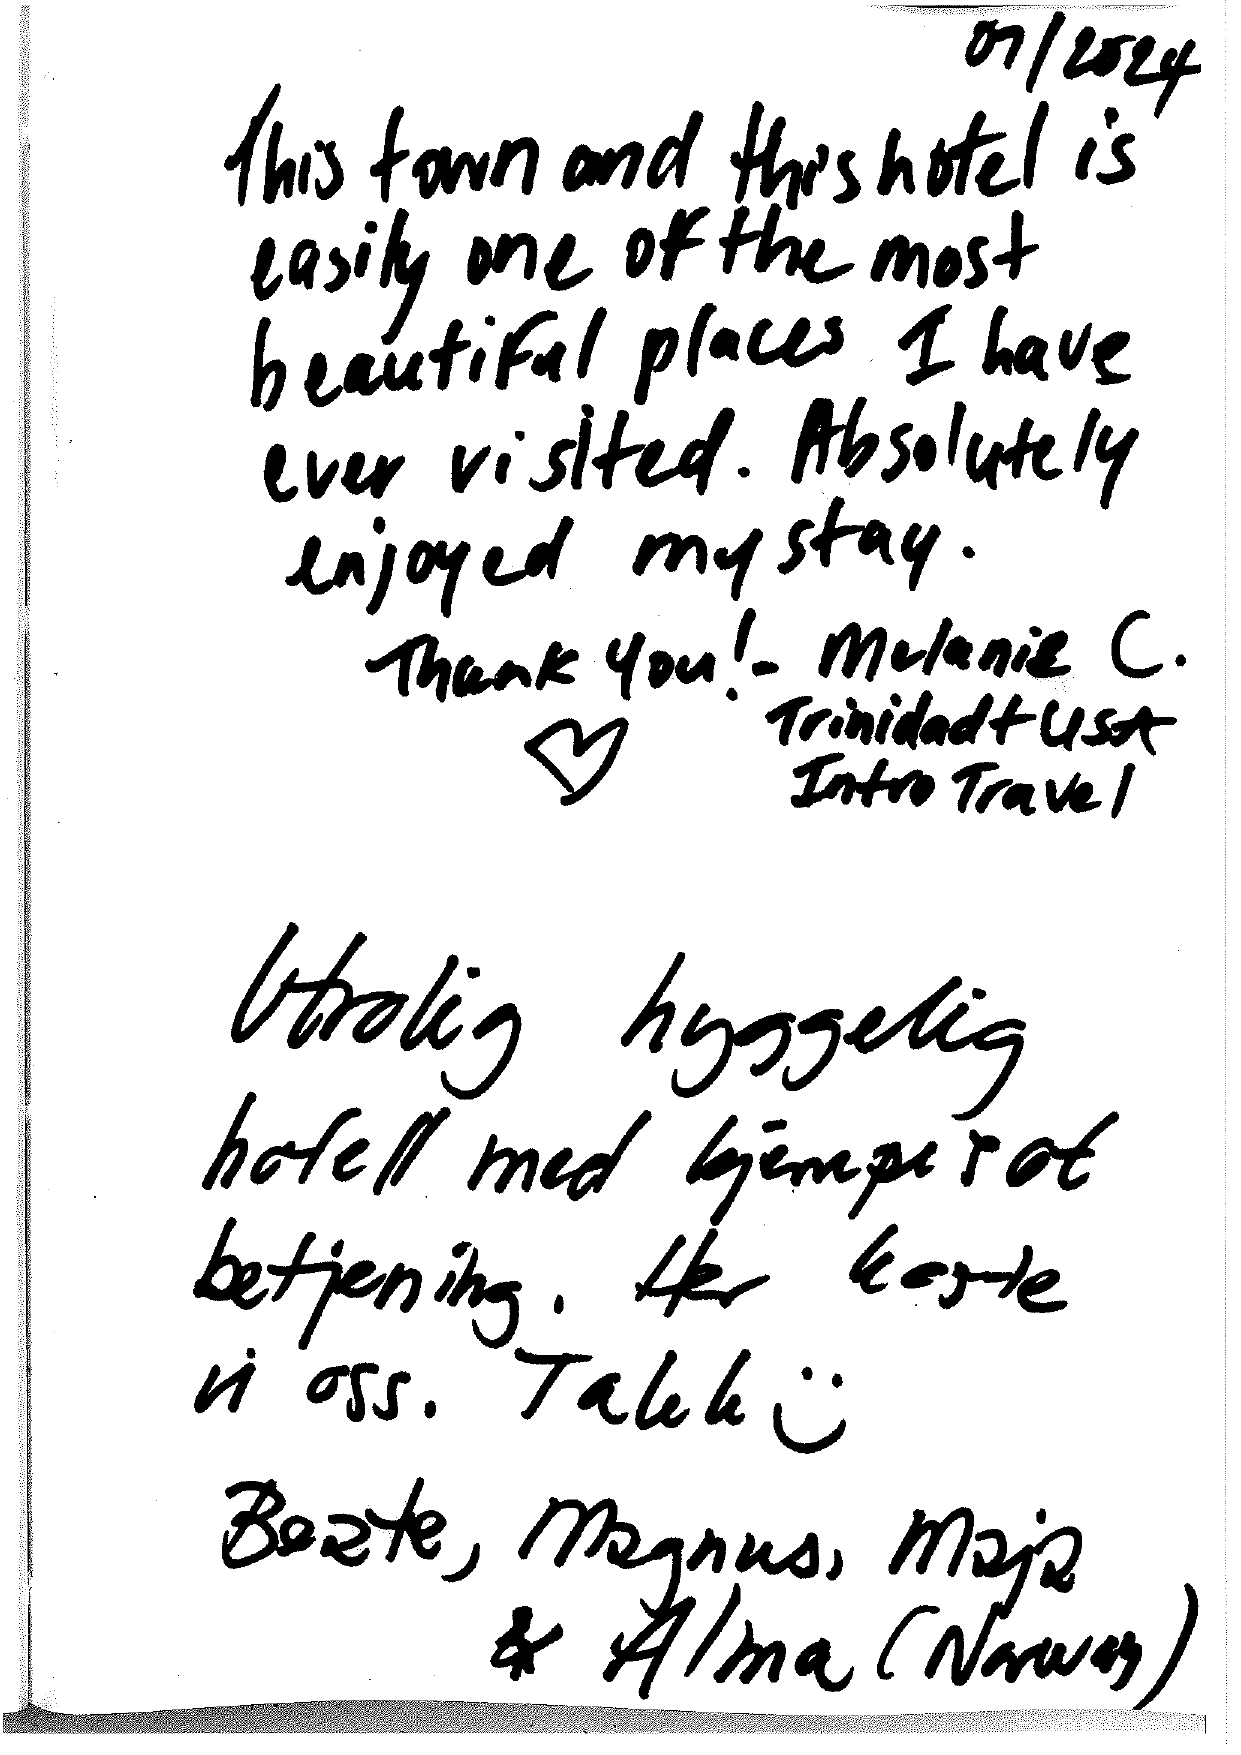 07/2024
This town and this hotel is
easily one of the most
beautiful places I have
ever visited. Absolutely
enjoyed my stay.
Thank you! - Melanie C.
Trinidad + USA
Intro Travel
Utrolig hyggelig
hotell med kjempe rot
betjening. Her koste
vi oss. Takk
Beate, Magnus, Maja
& Alma (Norway)